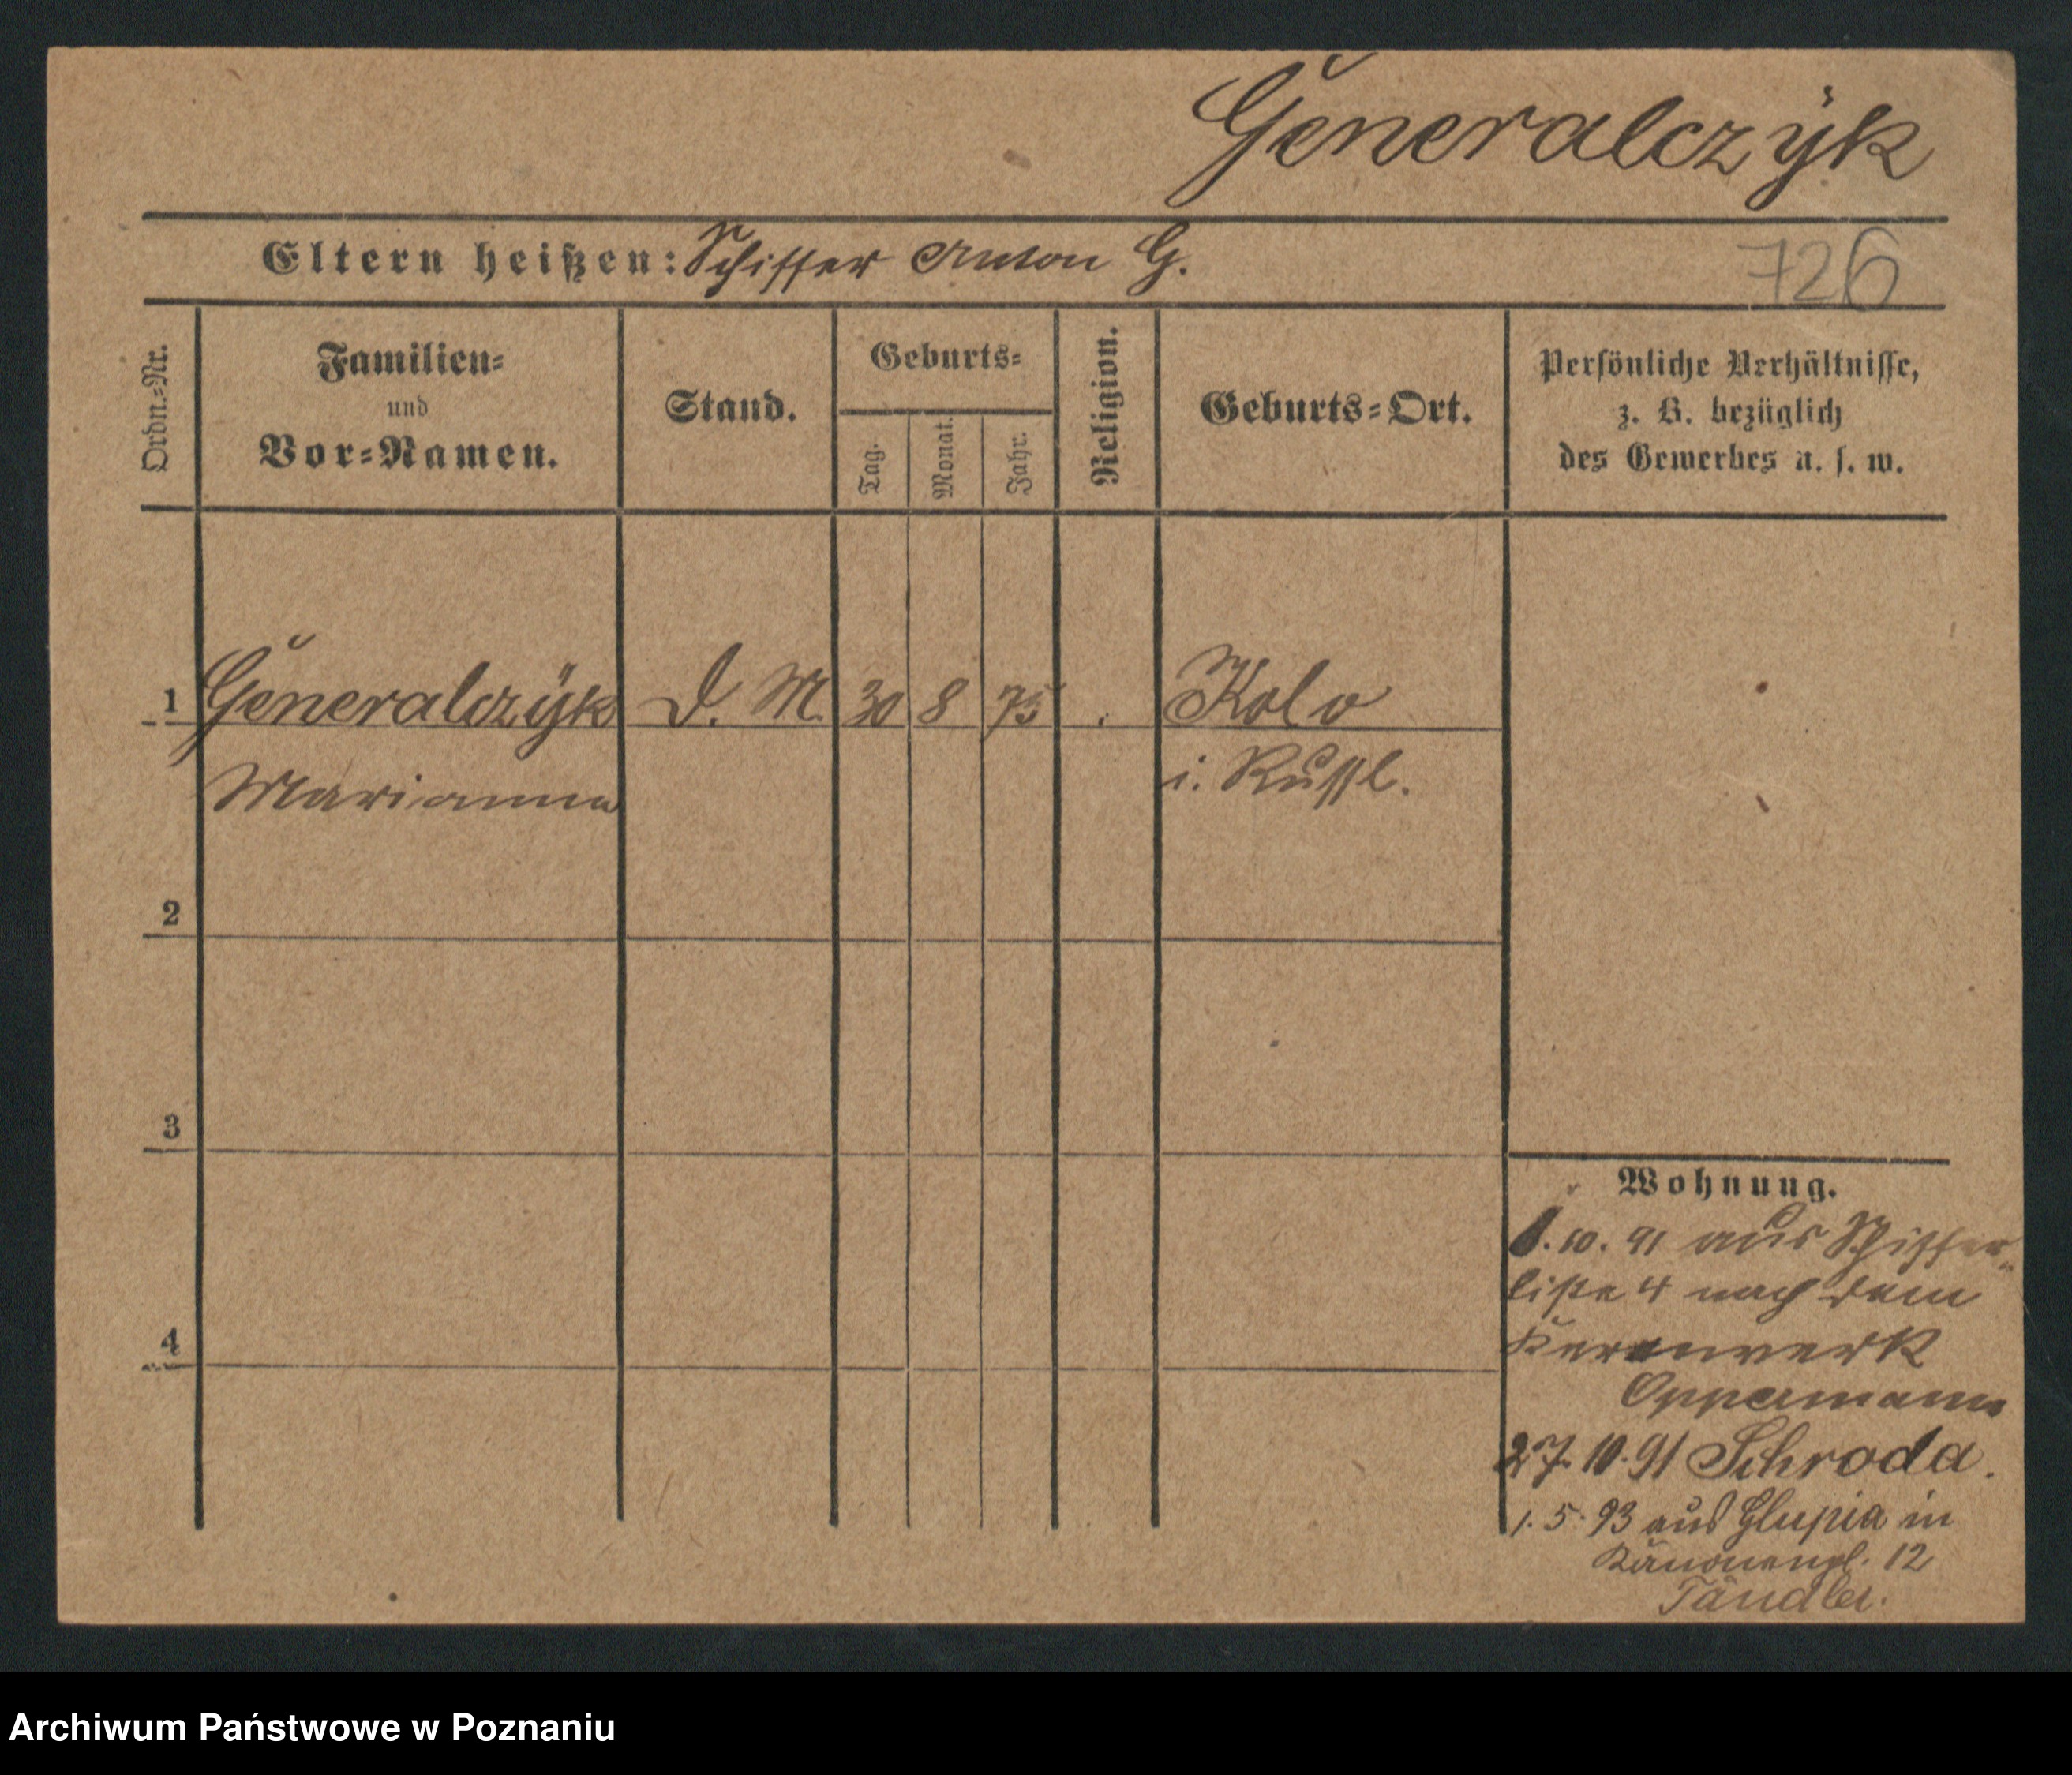 Generalczyk
Eltern heißen: Schiffer Anton G.
726
Ordn.-Nr.
Familien-
und
Vor-Namen.
Stand.
Geburts-
Tag.
Monat.
Jahr.
Religion.
Geburts-Ort.
Persönliche Verhältnisse,
z. B. bezüglich
des Gewerbes u. s. w.
1 Generalczyk D. M. 30 8 75 Kolo
Marianna i. Russl.
2
3
4
Wohnung.
1.10.91 aus Schiffer-
liste 4 nach dem
Kernwerk
Oppermann
27.10.91 Schroda.
1.5.93 aus Glupia in
Kanonenpl. 12
Tändler.
Archiwum Państwowe w Poznaniu